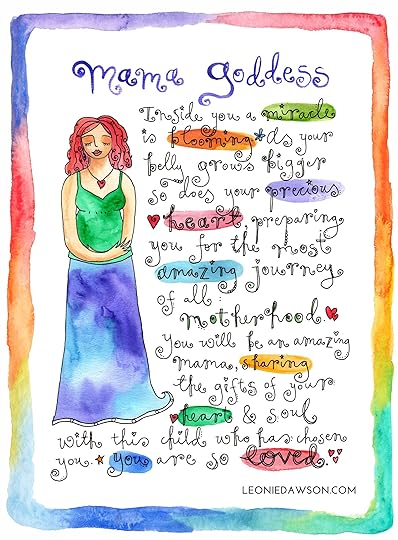 Mama Goddess
Inside you a miracle
is blooming As your
belly grows bigger
so does your precious
heart, preparing
you for the most
amazing journey
of all:
motherhood.
You will be an amazing
mama, sharing
the gifts of your
heart & soul
with this child who has chosen
you. You are so loved.
LEONIEDAWSON.COM